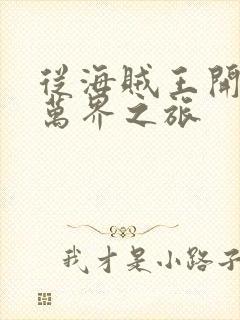 從海賊王開
萬界之旅
我才是小路子